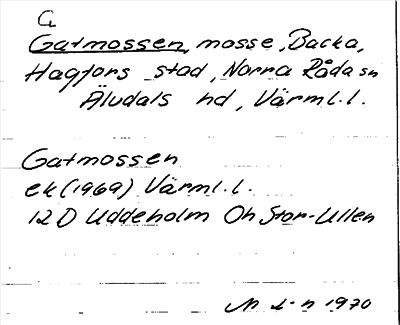 G
Gatmossen, mosse, Backa,
Hagfors stad, Norra Råda sn
Äludals hd, Värml. l.
Gatmossen
ek (1969) Värml. l.
12 D Uddeholm Oh Stor-Ullen
1970